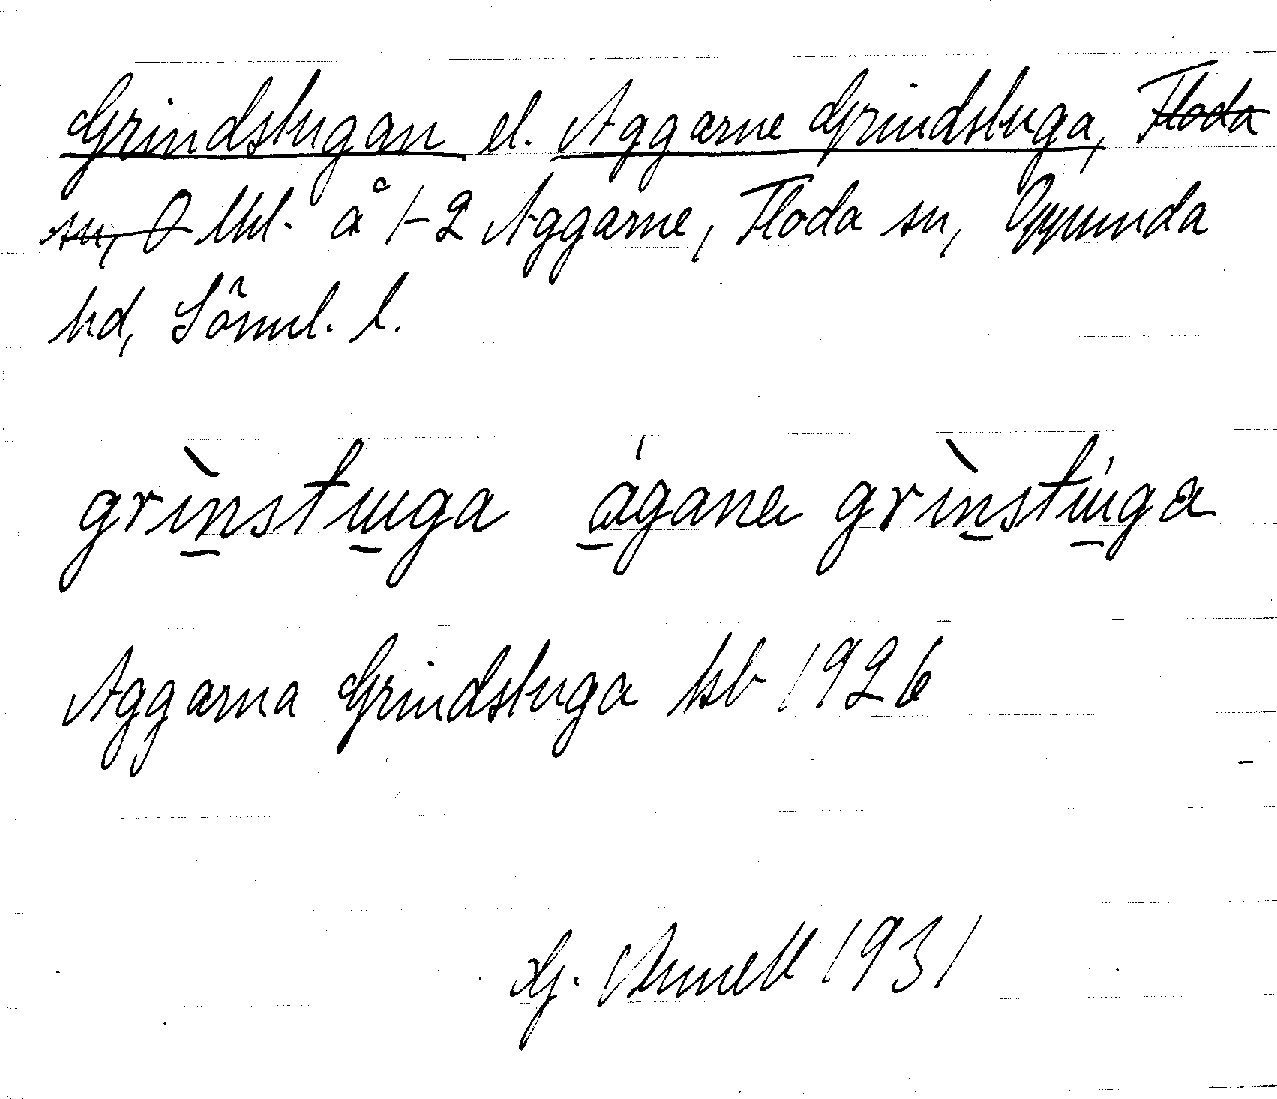 Grindstugan el. Aggarne Grindstuga, Floda
sn, O lht. å 1-2 Aggarne, Floda sn, Oppunda
hd, Sörml. l.
grìnstuga ágane grìnstúga
Aggarna Grindstuga kb 1926
G. 1931